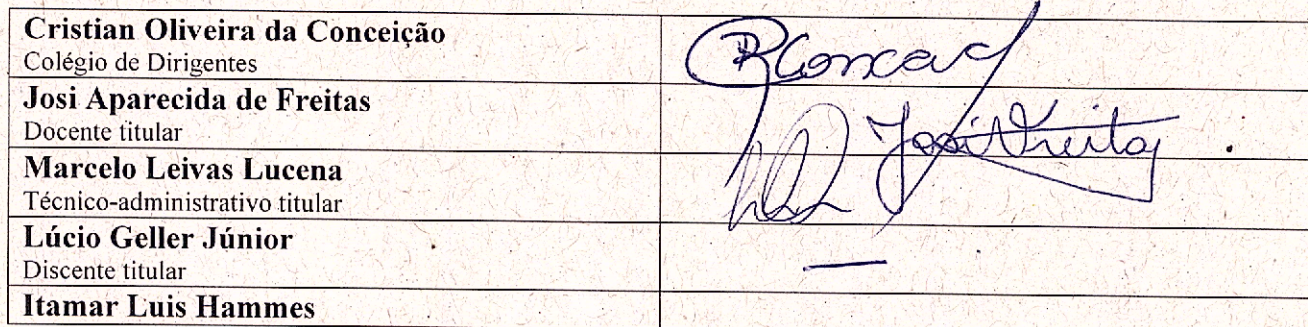 Cristian Oliveira da Conceição
Colégio de Dirigentes
Josi Aparecida de Freitas
Docente titular
Josi Freitas
Marcelo Leivas Lucena
Técnico-administrativo titular
Lúcio Geller Júnior
Discente titular
Itamar Luis Hammes